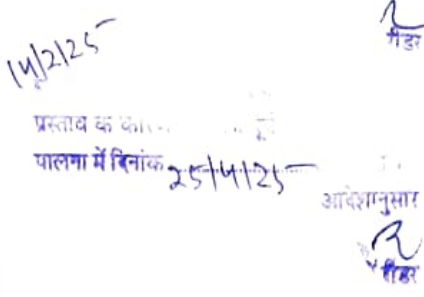 रीडर
14/2/25
प्रस्ताव के
पालना में दिनांक 25/4/25
आदेशानुसार
रीडर